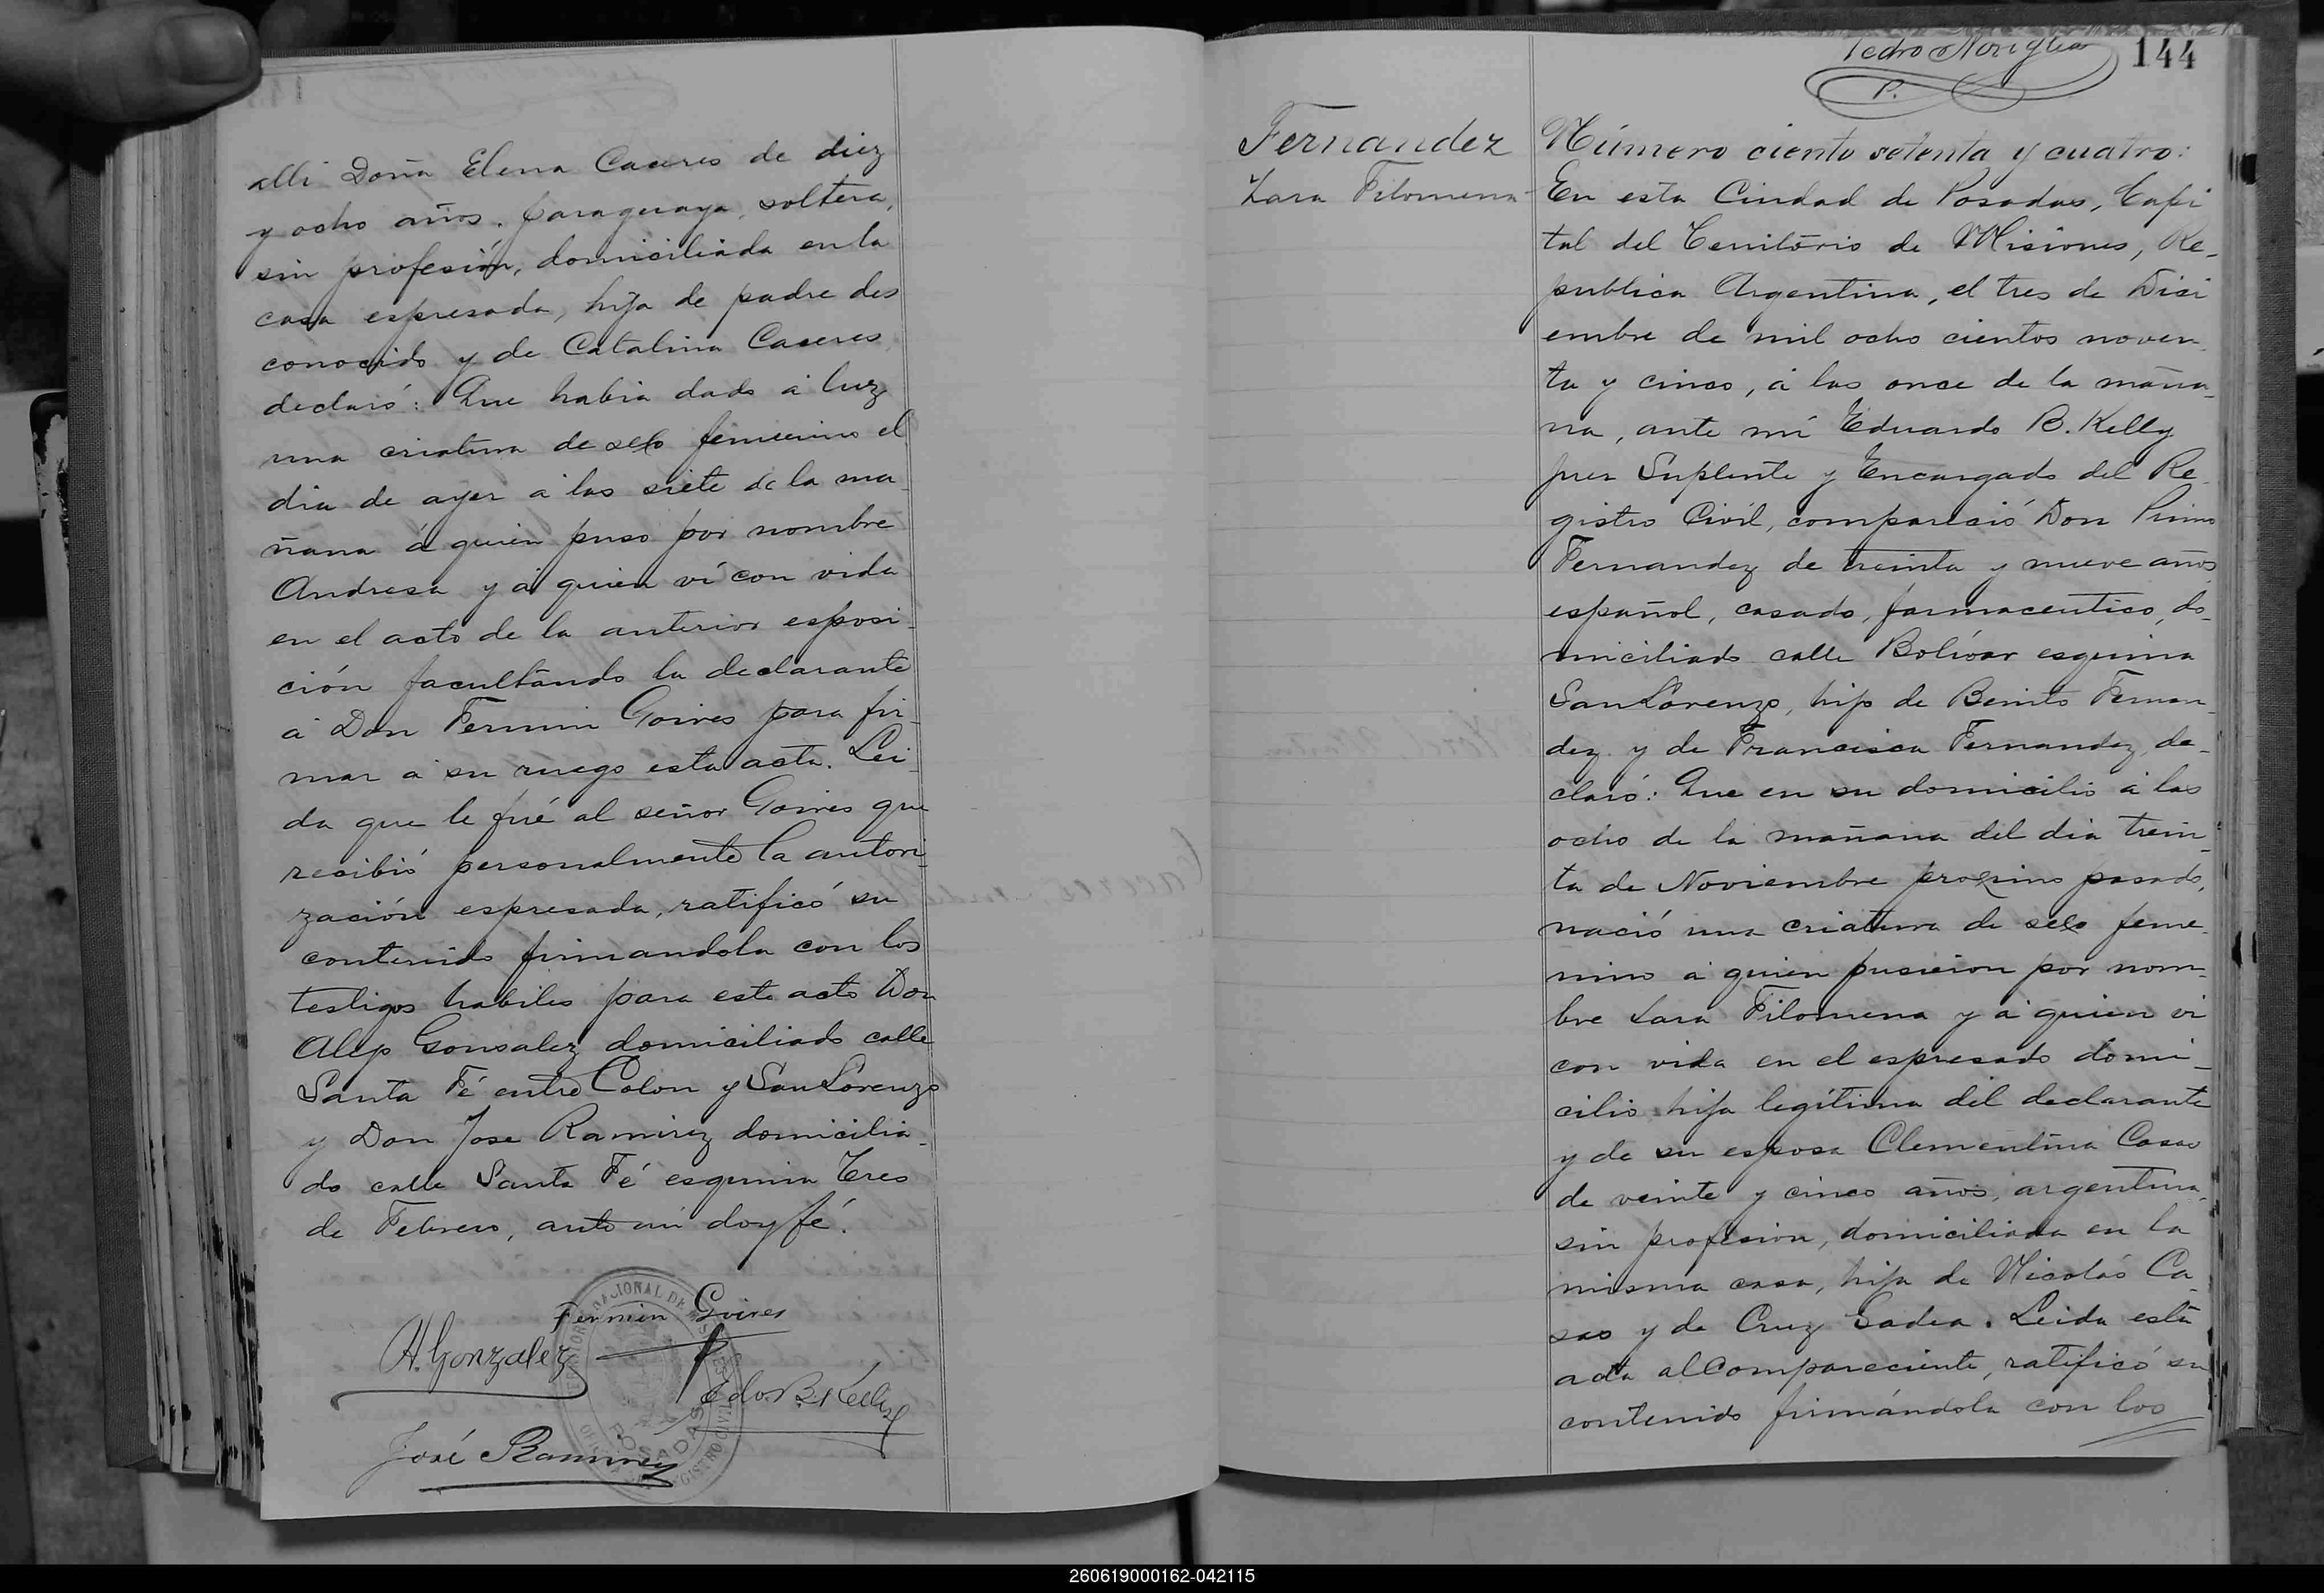 alli Doña Elena Caceres de diez
y ocho años. paraguaya, soltera,
sin profesión, domiciliada en la
casa espresada, hija de padre des
conocido y de Catalina Caseres
declaró: Que habia dado á luz
una criatura de sexo femenino el
dia de ayer a las siete de la ma
ñana á quien puso por nombre
Andresa y á quien ví con vida
en el acto de la anterior esposi-
ción facultando la declarante
a Don Fermin Goires para fir-
mar a su ruego esta acta. Lei-
da que le fué al señor Goires que
recibió personalmente la autori-
zación espresada, ratificó su
contenido firmandola con los
testigos habiles para este acto Don
Alejo Gonsalez domiciliado calle
Santa Fé entre Colon y San Lorenzo
y Don Jose Ramirez domicilia-
do calle Santa Fé esquina Tres
de Febrero, ante mi doy fé.
Fermin Goires
A. Gonzalez
Edo. B. Kelly
José Ramirez
POSADAS
Pedro Noriglia
P.
144
Fernandez
Zara Filomena
Número ciento setenta y cuatro:
En esta Ciudad de Posadas, Capi
tal del Territorio de Misiones, Re-
publica Argentina, el tres de Dici
embre de mil ocho cientos noven
ta y cinco, á las once de la maña-
na, ante mí Eduardo B. Kelly
Juez Suplente y Encargado del Re
gistro Civil, compareció Don Primo
Fernandez de treinta y nueve años
español, casado, farmaceutico, do-
miciliado calle Bolívar esquina
San Lorenzo, hijo de Benito Fernan-
dez y de Francisca Fernandez, de-
claró: Que en su domicilio á las
ocho de la mañana del dia trein-
ta de Noviembre proximo pasado,
nació una criatura de sexo feme-
nino a quien pusieron por nom-
bre Zara Filomena y á quien vi
con vida en el espresado domi-
cilio hija legítima del declarante
y de su esposa Clementina Casao
de veinte y cinco años, argentina,
sin profesion, domiciliada en la
misma casa, hija de Nicolás Ca
sao y de Cruz Gadea. Leida esta
acta al Compareciente, ratificó su
contenido firmándola con los
260619000162-042115